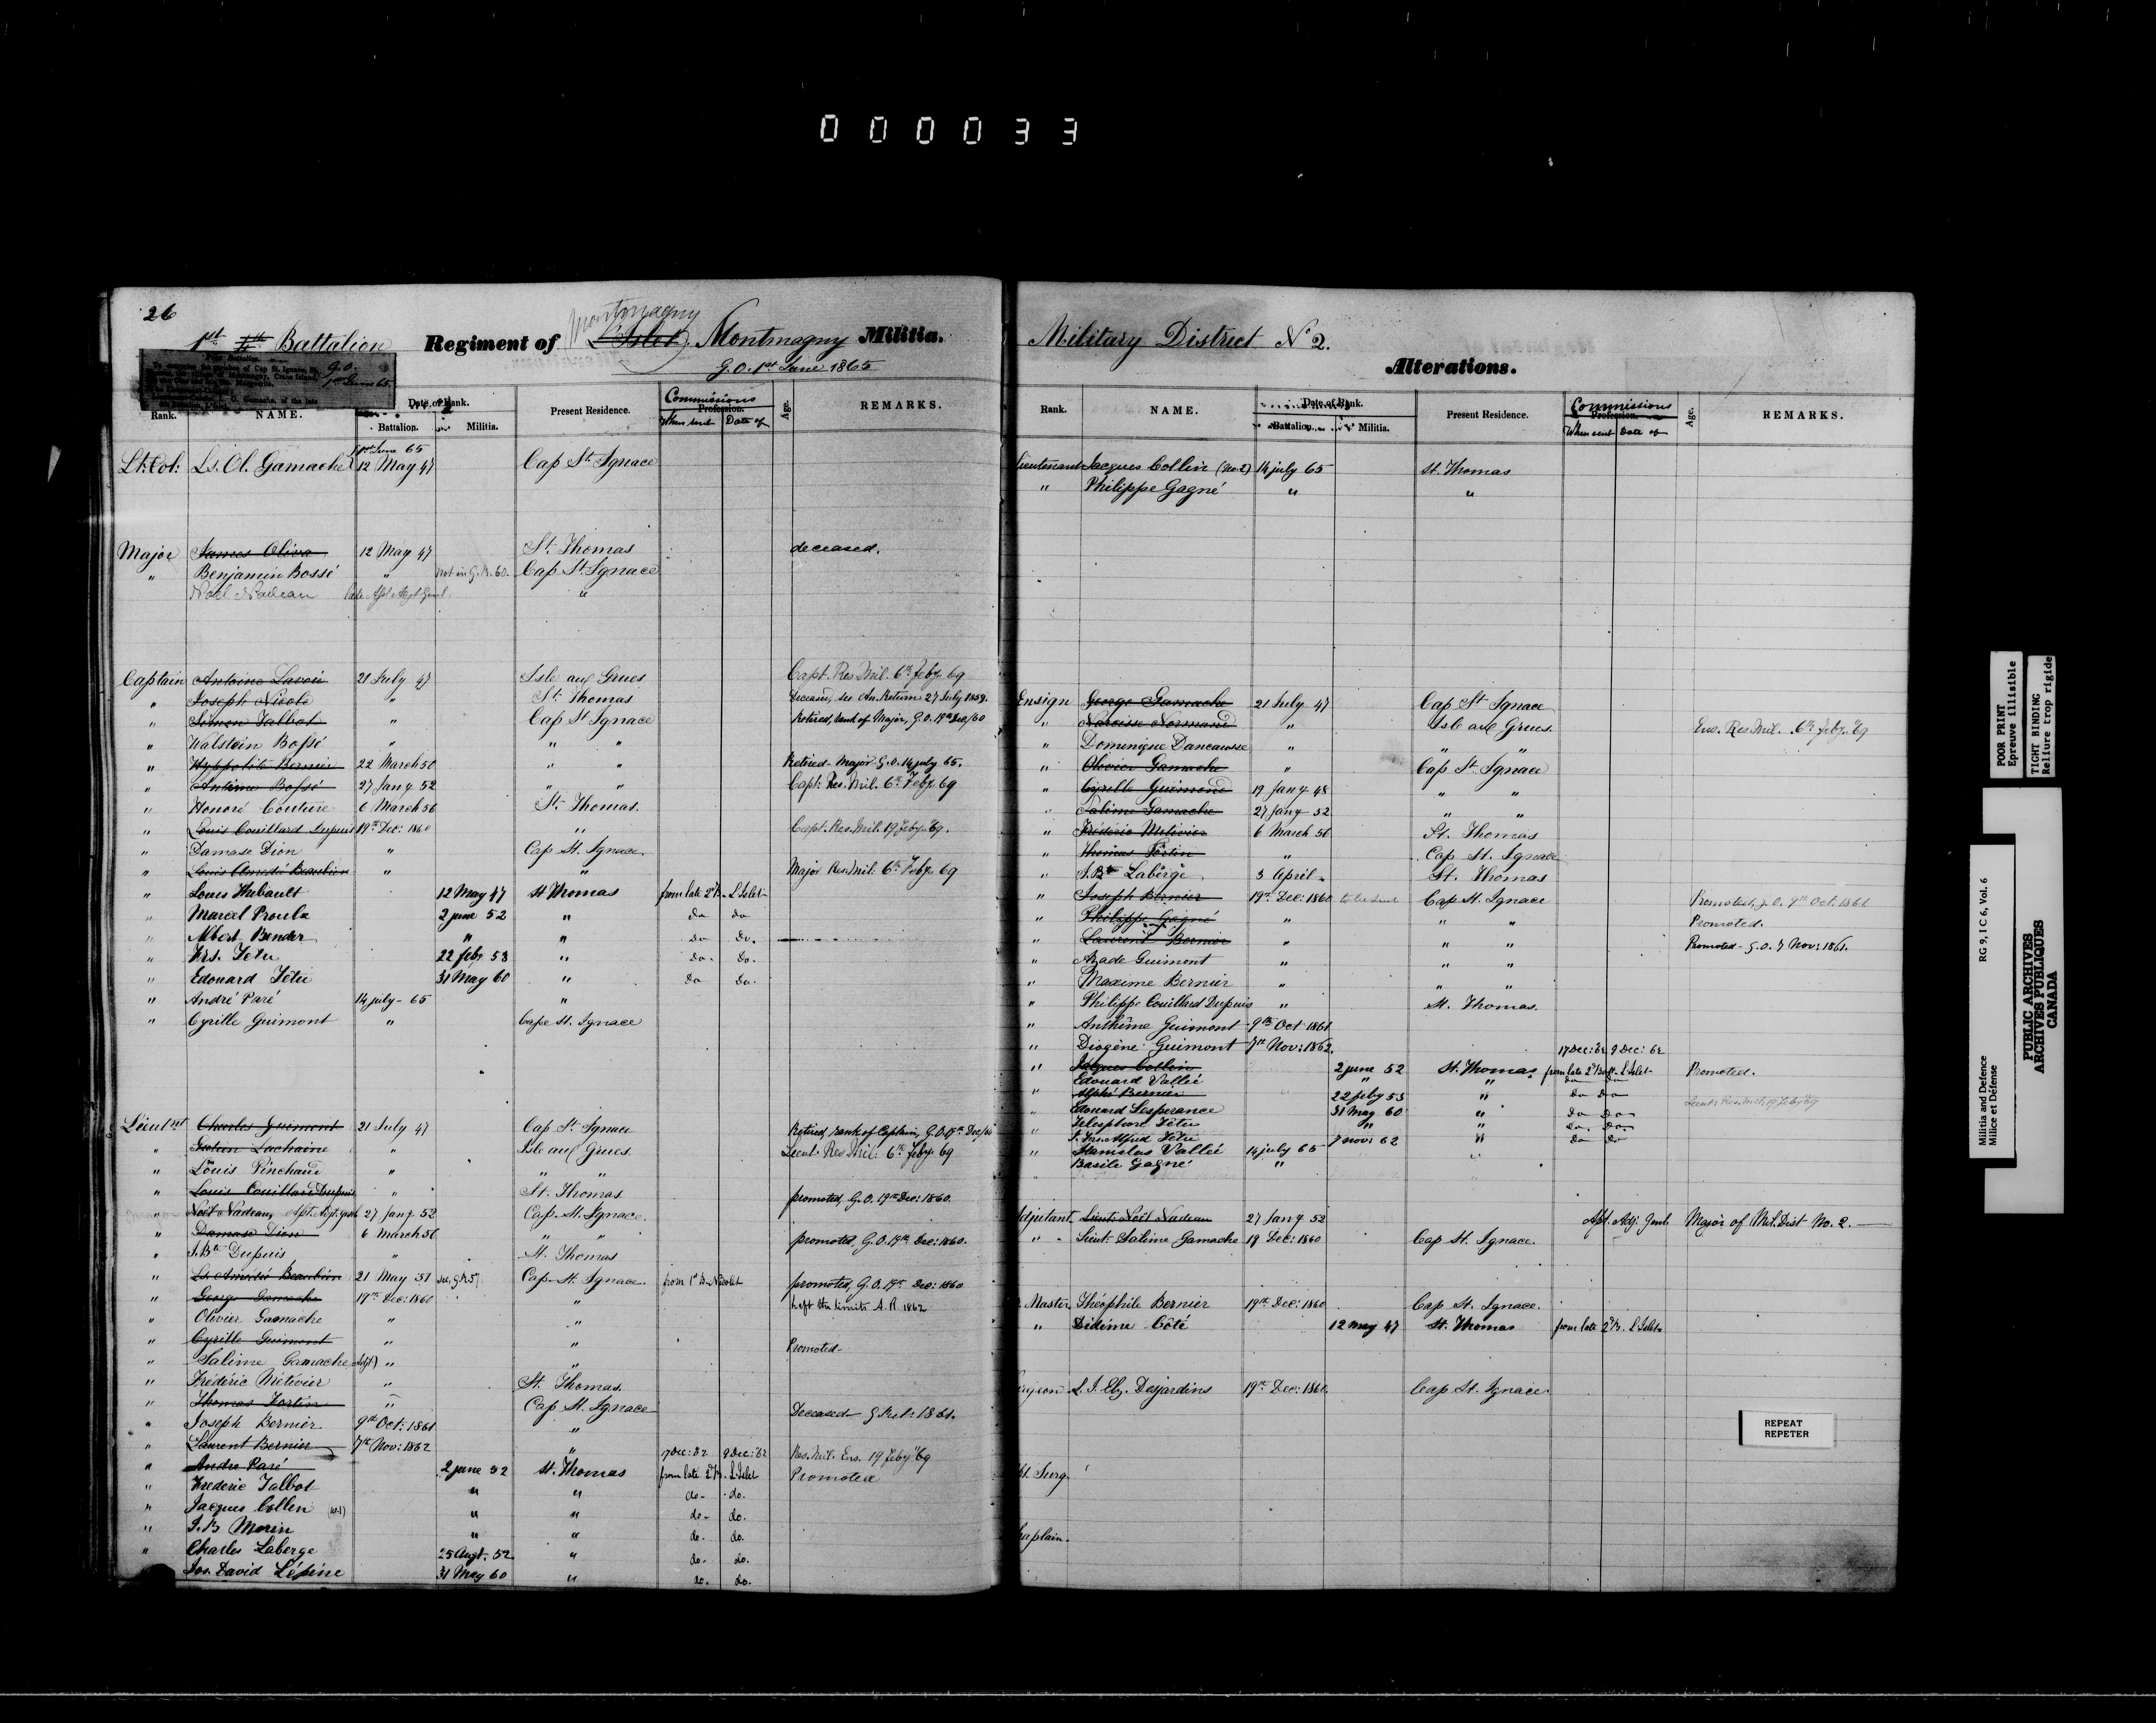 000033
26
1st Battalion Regiment of L'Islet Montmagny Militia.
Montmagny
G.O. 1st June 1865
G.O. 1st June 65
Rank. NAME. Date of Rank. Battalion. Militia. Present Residence. Commissions Profession. When sent Date of Age. REMARKS.
1st June 65
Lt: Col: Ls. Ol. Gamache 12 May 47 Cap St. Ignace
Major James Oliva 12 May 47 St. Thomas deceased.
" Benjamin Bossé " not in G.R. 60. Cap St. Ignace
Noël Nadeau "
Captain Antoine Lavoie 21 July 47 Isle aux Grues Capt. Res. Mil. 6th Feby. 69
" Joseph Nicole " St. Thomas Deceased, see An. Return 27 July 1859.
" Simon Talbot " Cap St Ignace Retired, rank of Major, G.O. 19th Dec/60
" Walstein Bossé " " "
" Hyppolite Bernier 22 March 50 " " Retired - Major G.O. 14 july 65.
" Antime Bossé 27 Jany 52 " " Capt: Res. Mil. 6th Feby. 69
" Honoré Couture 6 March 56 St. Thomas.
" Louis Couillard Dupuis 19th Dec: 1860 " Capt. Res. Mil. 19 Feby. 69.
" Damase Dion " Cap St. Ignace.
" Louis Amedé Beaulieu " " Major Res. Mil: 6th Feby. 69
" Louis Hubault 12 May 47 St Thomas from late 2d B. L'Islet
" Marcel Proulx 2 june 52 " do do
" Albert Bender " " do do.
" Frs. Tetu 22 feby 53 " do. do.
" Edouard Têtu 31 May 60 " do do.
" André Paré 14 july 65 "
" Cyrille Guimont " Cape St. Ignace
Lieutnt Charles Guimont 21 July 47 Cap St. Ignace Retired, rank of Captain, G.O. 19th Dec/60
" Julien Lachaine " Isle aux Grues. Lieut. Res. Mil: 6th Feby. 69
" Louis Pinchaud " " "
" Louis Couillard Dupuis " St. Thomas promoted, G.O. 19th Dec: 1860.
" Noël Nadeau, 27 Jany 52 Cap. St. Ignace.
" Damase Dion 6 March 56 " " promoted, G.O. 19th Dec: 1860.
" J. Bte Dupuis " St. Thomas
" Ls. Amédé Beaulieu 21 May 57 Cap St. Ignace from 1st B. Nicolet promoted, G.O. 19th Dec: 1860
" George Gamache 19th Dec: 1860 " Left the limits A. R. 1862
" Olivier Gamache " "
" Cyrille Guimont " " Promoted-
" Salime Gamache (Adjt) " "
" Frédéric Métivier " St. Thomas.
" Thomas Fortin " Cap St. Ignace Deceased G Ret: 1861.
" Joseph Bernier 9th Oct: 1861 "
" Laurent Bernier 7th Nov: 1862 " 17 Dec: 62 9 Dec: 62 Res. Mil. Ens. 19 Feby 69
" Andre Paré 2 june 52 St. Thomas from late 2d B. L'Islet Promoted
" Frederic Talbot " " do- do.
" Jacques Collen (No 1) " " do- do.
" J. B Morin " " do. do.
" Charles Laberge 25 Augt. 52 " do- do.
Jos. David Lépine 31 May 60 " do. do.
Military District No 2.
Alterations.
Rank. NAME. Date of Rank. Battalion. Militia. Present Residence. Commissions When sent Date of Age. REMARKS.
Lieutenant Jacques Collin (No. 2) 14 july 65 St. Thomas
" Philippe Gagné " "
Ensign George Gamache 21 July 47 Cap St Ignace
" Narcisse Normand " Isle aux Grues. Ens. Res. Mil. 6th Feby. 69
" Dominique Dancausse " " "
" Olivier Gamache " Cap St. Ignace
" Cyrille Guimond 19 Jany 48 " "
" Salime Gamache 27 Jany 52 " "
" Fréderic Metivier 6 March 56 St. Thomas
" Thomas Fortin " Cap St. Ignace
" J. Bte Laberge 3 April " St. Thomas
" Joseph Bernier 19th Dec: 1860 Cap St. Ignace Promoted, G.O. 9th Oct. 1861
" Philippe Gagné " " " Promoted.
" Laurent Bernier " " " Promoted - G.O. 7 Nov: 1861.
" Azade Guimont " " "
" Maxime Bernier " " "
" Philippe Couillard Dupuis " St. Thomas.
" Anthime Guimont 9th Oct 1861
" Diogène Guimont 7th Nov: 1862. 17 Dec: 62 9 Dec: 62
" Jacques Collin 2 june 52 St. Thomas from late 2d Batt. L'Islet Promoted.
Edouard Vallée " " do do
" Alphé Bernier 22 feby 53 " do do Lieut. Res. Mil. 19 Feby 69
Edouard Lesperance 31 May 60 " do do
" Telesphore Têtu " " do. do.
J. Frs. Alfred Têtu 7 nov: 62 " do do
" Stanislas Vallée 14 july 65 "
Basile Gagné "
Adjutant Lieut: Noël Nadeau 27 Jany 52 Apt. Adj. Genl. Major of Mil. Dist No. 2.
" Lieut. Salime Gamache 19 Dec: 1860 Cap St. Ignace.
Master Théophile Bernier 19th Dec: 1860 Cap St. Ignace.
" Didime Côté 12 May 47 St. Thomas from late 2d B. L'Islet
L. J. Elz. Desjardins 19th Dec: 1860. Cap St. Ignace.
Surg.
POOR PRINT
Epreuve illisible
TIGHT BINDING
Reliure trop rigide
Militia and Defence
Milice et Défense
RG 9, I C 6, Vol. 6
PUBLIC ARCHIVES
ARCHIVES PUBLIQUES
CANADA
REPEAT
REPETER